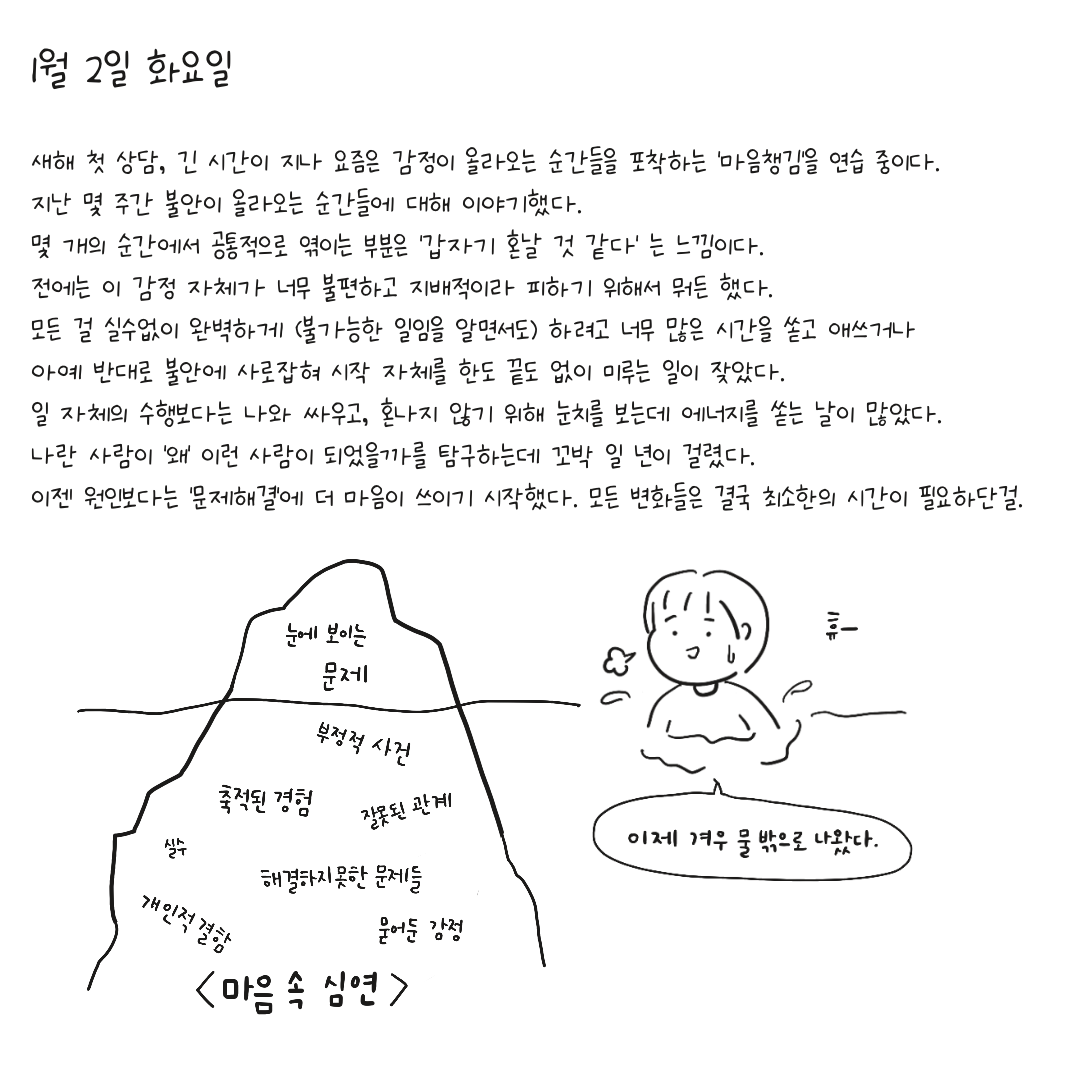 1월 2일 화요일
새해 첫 상담, 긴 시간이 지나 요즘은 감정이 올라오는 순간들을 포착하는 '마음챙김'을 연습 중이다.
지난 몇 주간 불안이 올라오는 순간들에 대해 이야기했다.
몇 개의 순간에서 공통적으로 엮이는 부분은 '갑자기 혼날 것 같다' 는 느낌이다.
전에는 이 감정 자체가 너무 불편하고 지배적이라 피하기 위해서 뭐든 했다.
모든 걸 실수없이 완벽하게 (불가능한 일임을 알면서도) 하려고 너무 많은 시간을 쏟고 애쓰거나
아예 반대로 불안에 사로잡혀 시작 자체를 한도 끝도 없이 미루는 일이 잦았다.
일 자체의 수행보다는 나와 싸우고, 혼나지 않기 위해 눈치를 보는데 에너지를 쏟는 날이 많았다.
나란 사람이 '왜' 이런 사람이 되었을까를 탐구하는데 꼬박 일 년이 걸렸다.
이젠 원인보다는 '문제해결'에 더 마음이 쓰이기 시작했다. 모든 변화들은 결국 최소한의 시간이 필요하단걸.
눈에 보이는
문제
부정적 사건
축적된 경험
잘못된 관계
실수
해결하지못한 문제들
개인적결함
묻어둔 감정
<마음 속 심연>
휴ㅡ
이제 겨우 물 밖으로 나왔다.